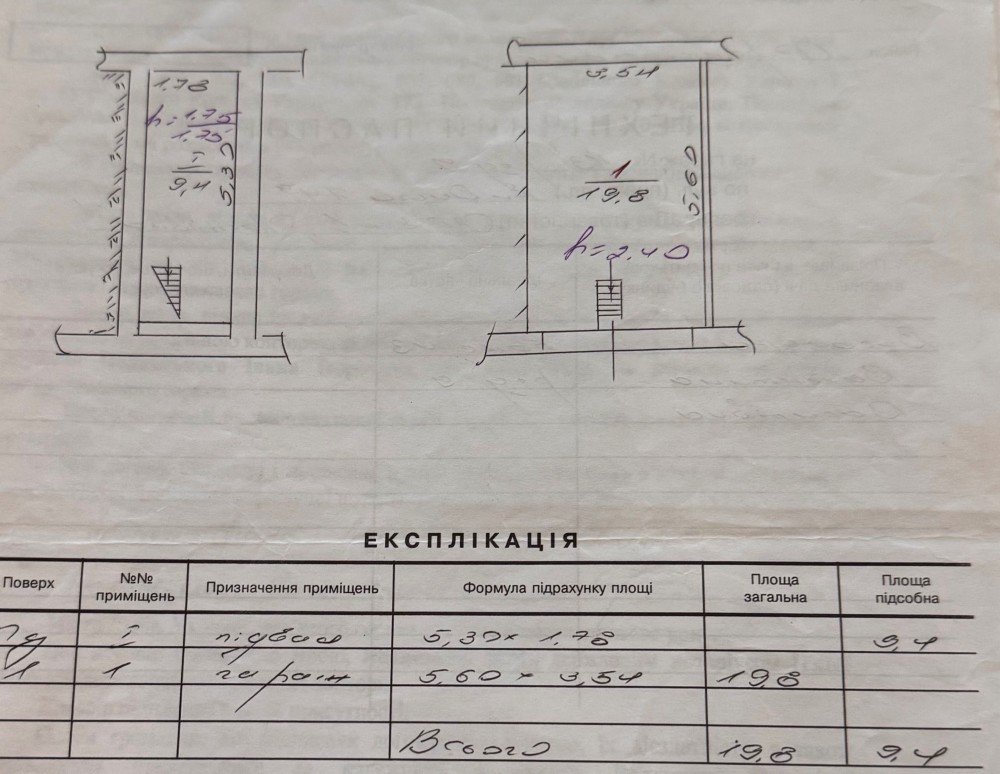 1.78
h=1.75
1.75
I
9,4
5,30
3,54
1
19.8
5,60
h=2.40
ЕКСПЛІКАЦІЯ
Поверх №№ приміщень Призначення приміщень Формула підрахунку площі Площа загальна Площа підсобна
Пд I підвал 5,30 x 1,78 9,4
1 1 гараж 5,60 x 3,54 19,8
Всього 19,8 9,4